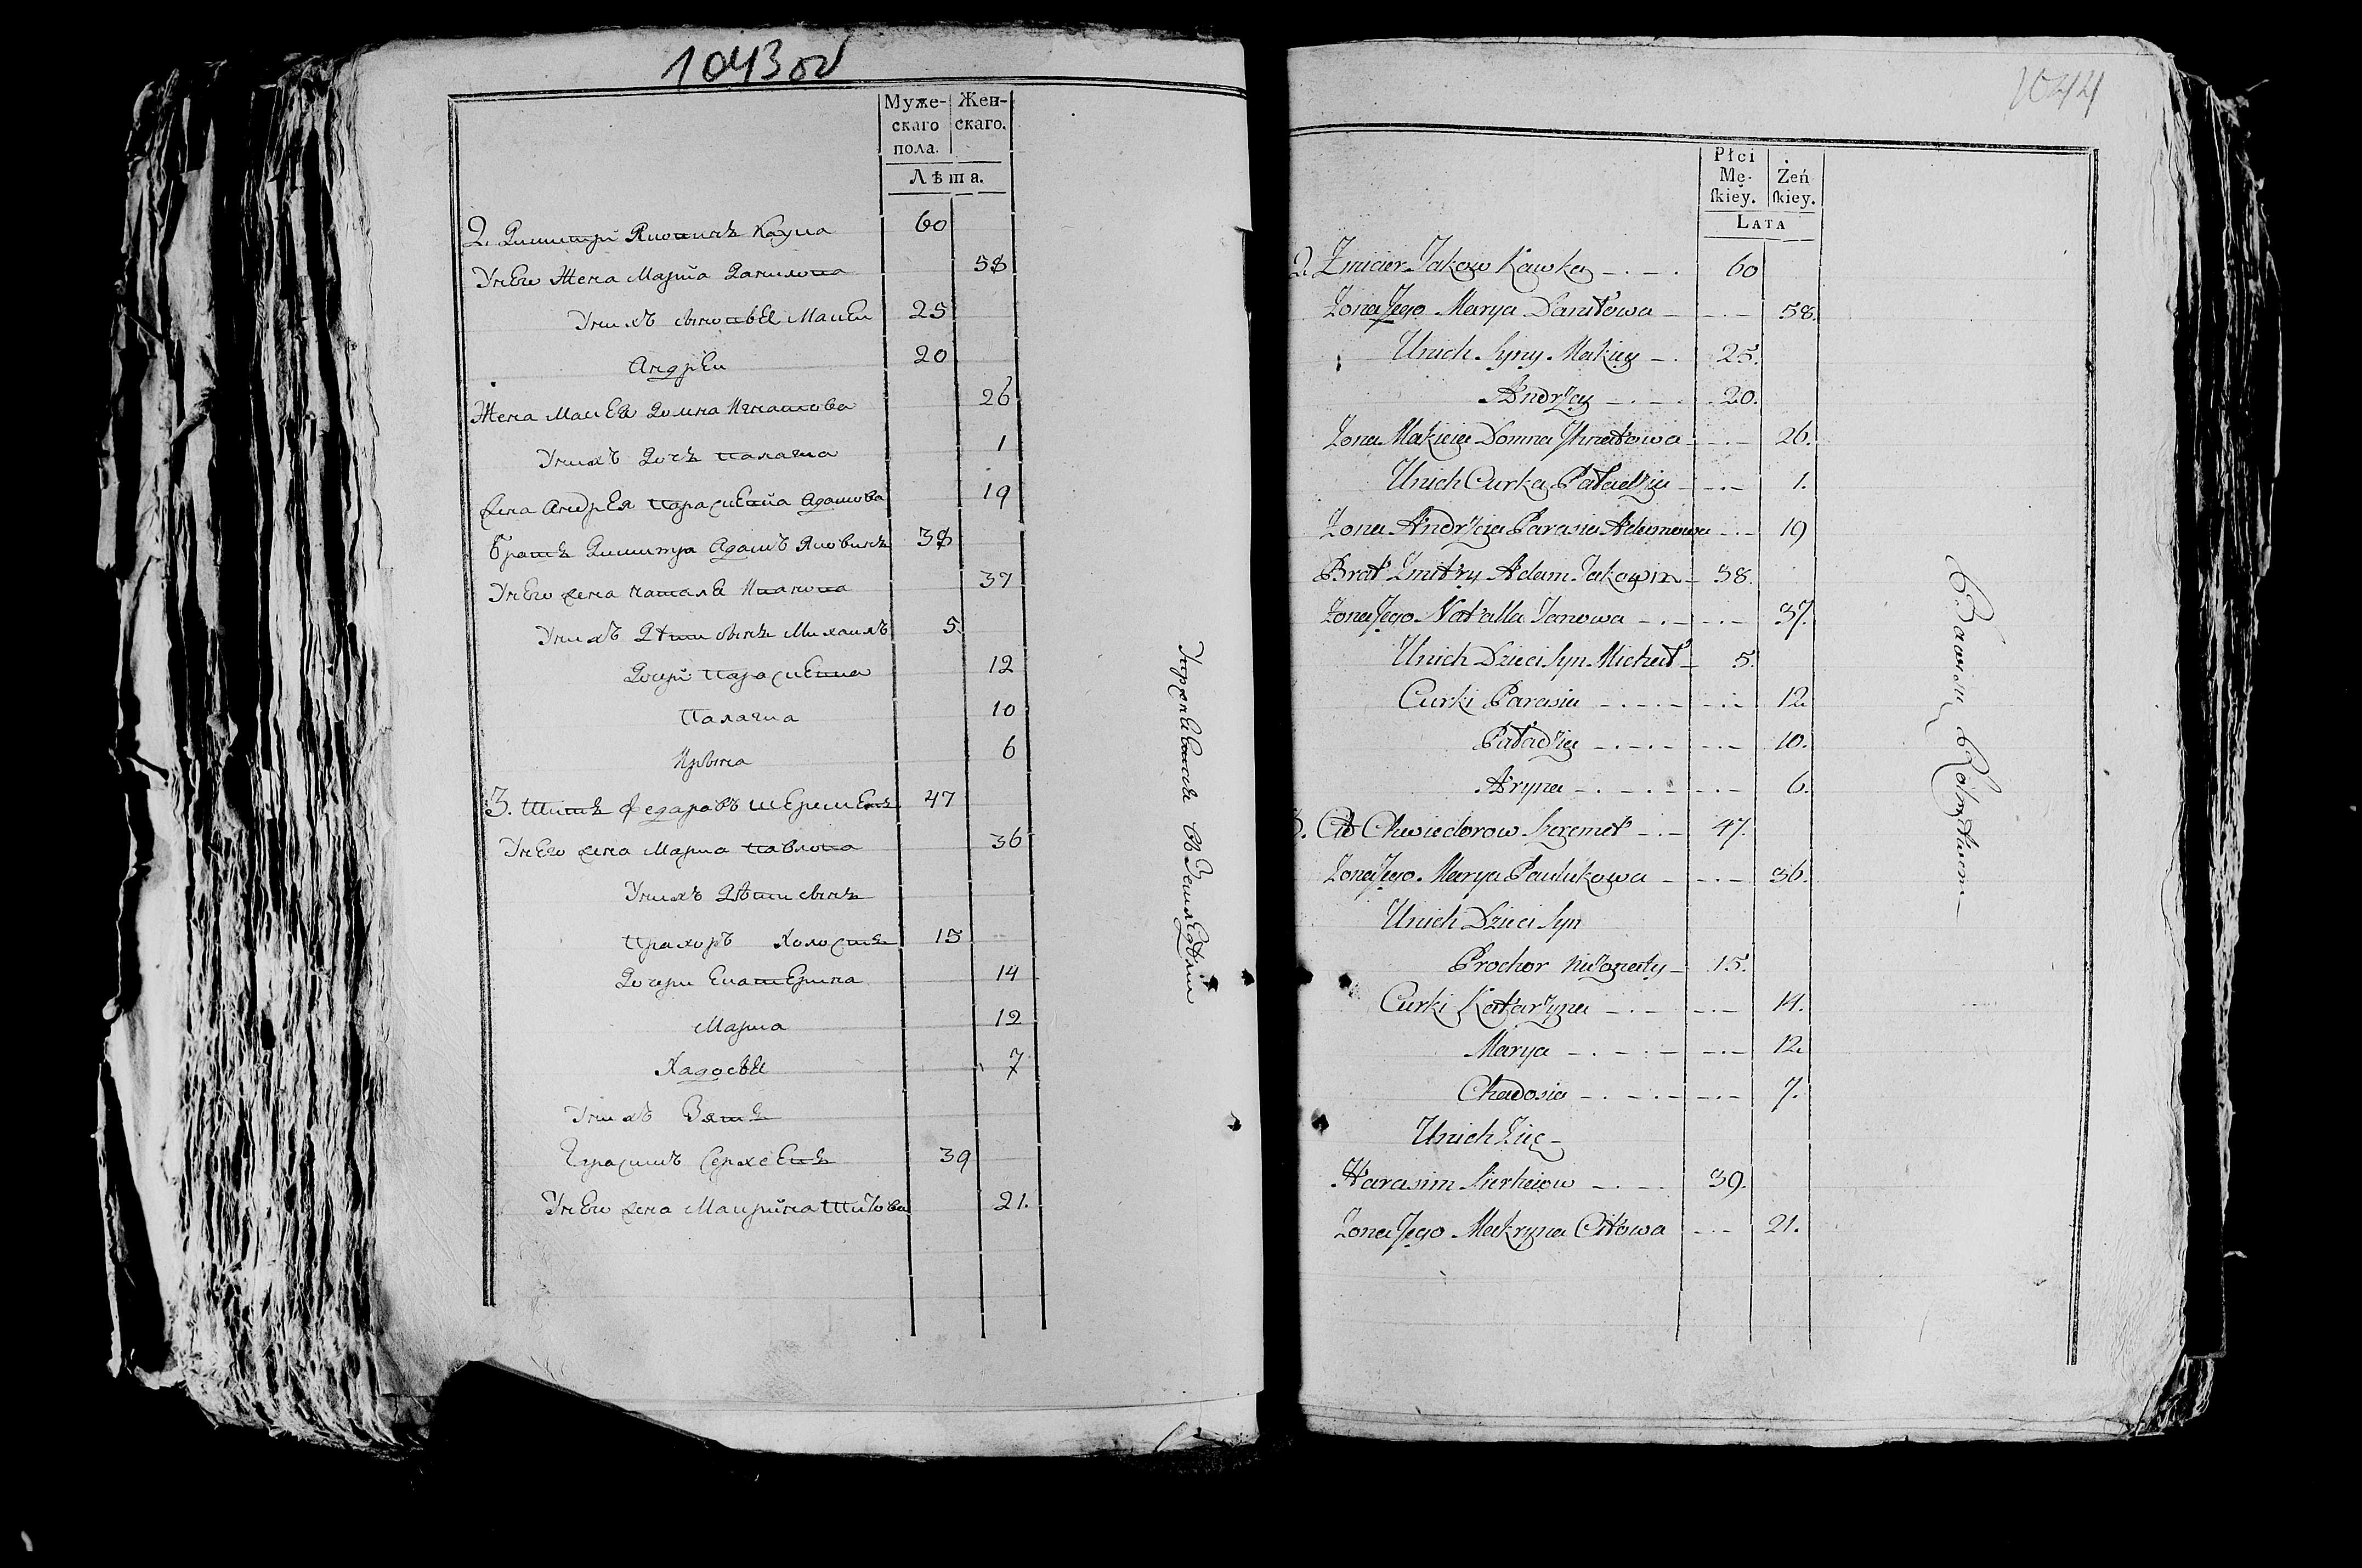 1043 об
Муже-
скаго
пола.
Жен-
скаго.
Лѣта.
2. Димитрй Яковинъ Каука 60
У него Жена Марйа Данилова 58
У нихъ сыновья Макеи 25
Андреи 20
Жена Макея Домна Игнатова 26
У нихъ Дочь палагиа 1
жена Андрея парасквия Адамова 19
братъ Димитра Адамъ Яковинъ 38
У него жена наталя Иванова 37
У нихъ Дѣти сынъ Михаилъ 5.
Дочери парасквиа 12
палагиа 10
Ирына 6
3. Титъ федаровъ шереметъ 47
У него жена Мариа павлова 36
У нихъ Дѣти сынъ
прахоръ холостъ 15
Дочери Екатерина 14
Мариа 12
Хадосья 7
У нихъ Зять
Герасимъ Сергеевъ 39
У него жена Макрина Титова 21.
1044
Płci
Mę-
ſkiey.
Żeń
ſkiey.
LATA
2. Zmicier Jakow Kawka 60
Zona Jego Marya Daniłowa 58.
Unich Syny Makiey 25.
Andrzey 20.
Zona Makieia Domna Ihnatowa 26.
Unich Curka Paładzia 1.
Zona Andrzeia Parasia Adamowa 19
Brat Zmitry Adam Jakowin 38.
Zona Jego Natalla Janowa 37.
Unich Dzieci Syn Michał 5.
Curki Parasia 12.
Paładzia 10.
Aryna 6.
3. Cit Chwiedorow Szeremet 47.
Zona Jego Marya Pawlukowa 36.
Unich Dzieci Syn
Prochor nieżonaty 15.
Curki Katarzyna 14.
Marya 12.
Chadosia 7.
Unich Zięć
Harasim Sierheiow 39.
Zona Jego Makryna Citowa 21.